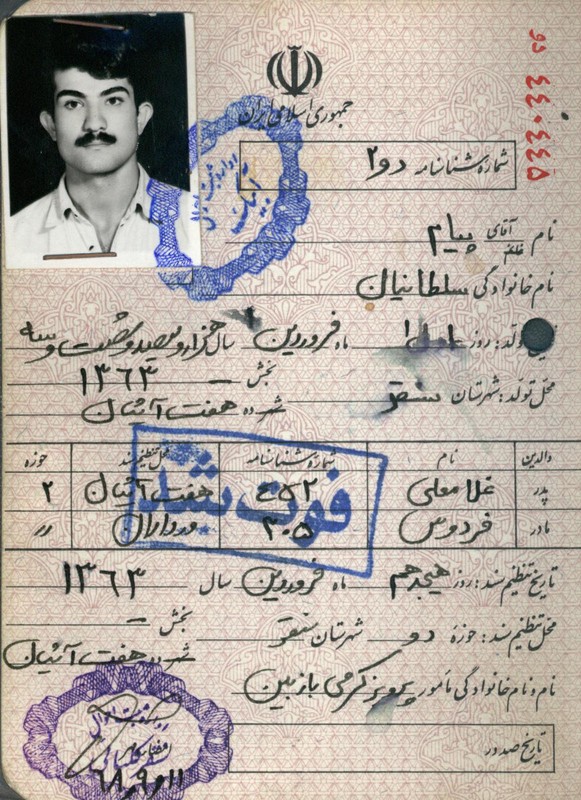 جمهوری اسلامی ایران
۴۴۰۴۴۵ دو
شماره شناسنامه دو ۲
نام آقای خانم پیام
نام خانوادگی سلطانیان
تولد: روز اول ۱ ماه فروردین ۱ سال هزار و سیصد و شصت و سه
۱۳۶۳
محل تولد: شهرستان سنقر بخش –
شهر ده هفت آشیان
والدین نام شماره شناسنامه محل تنظیم سند حوزه
پدر غلامعلی ۴۵۲ هفت آشیان ۲
مادر فردوس ۳۰۵ ورداران رر
فوت شد
تاریخ تنظیم سند: روز هیجدهم ماه فروردین سال ۱۳۶۳
محل تنظیم سند: حوزه دو شهرستان سنقر بخش –
شهر ده هفت آشیان
نام و نام خانوادگی مأمور پرویز کرمی بازبین
تاریخ صدور
۶۸٫۹٫۱۱